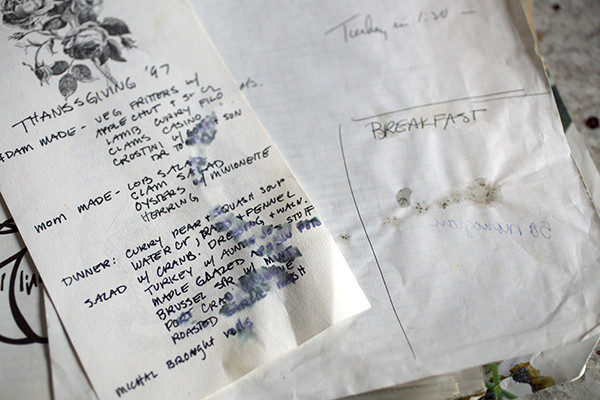 THANSSGIVING '97
ADAM MADE - VEG FRITTERS W/
APPLE CHUT + SR CR
LAMB CURRY FILO
CLAMS CASINO
CROSTINI W/ SON
DR TO
MOM MADE - LOB SALAD
CLAM SALAD
OYSTERS W/ MINIONETTE
HERRING
DINNER: CURRY PEAR + SQUASH SOUP
WATER CR, + FENNEL
SALAD W/ CRANB. DRESSING + WALN.
TURKEY W/ STUFF
MAPLE GLAZED POTS
BRUSSEL SPR W/
PORT CRAN
ROASTED
MICHAL BROUGHT rolls
Turkey in 1:30 -
BREAKFAST